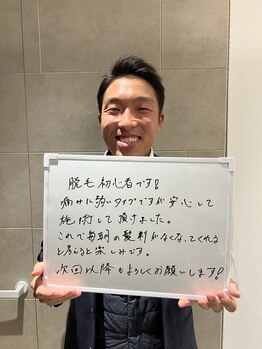 脱毛初心者です!
痛みに弱いタイプですが安心して
施術して頂けました。
これで毎朝の髭剃がなくなってくれる
と考えると楽しみです。
次回以降もよろしくお願いします!